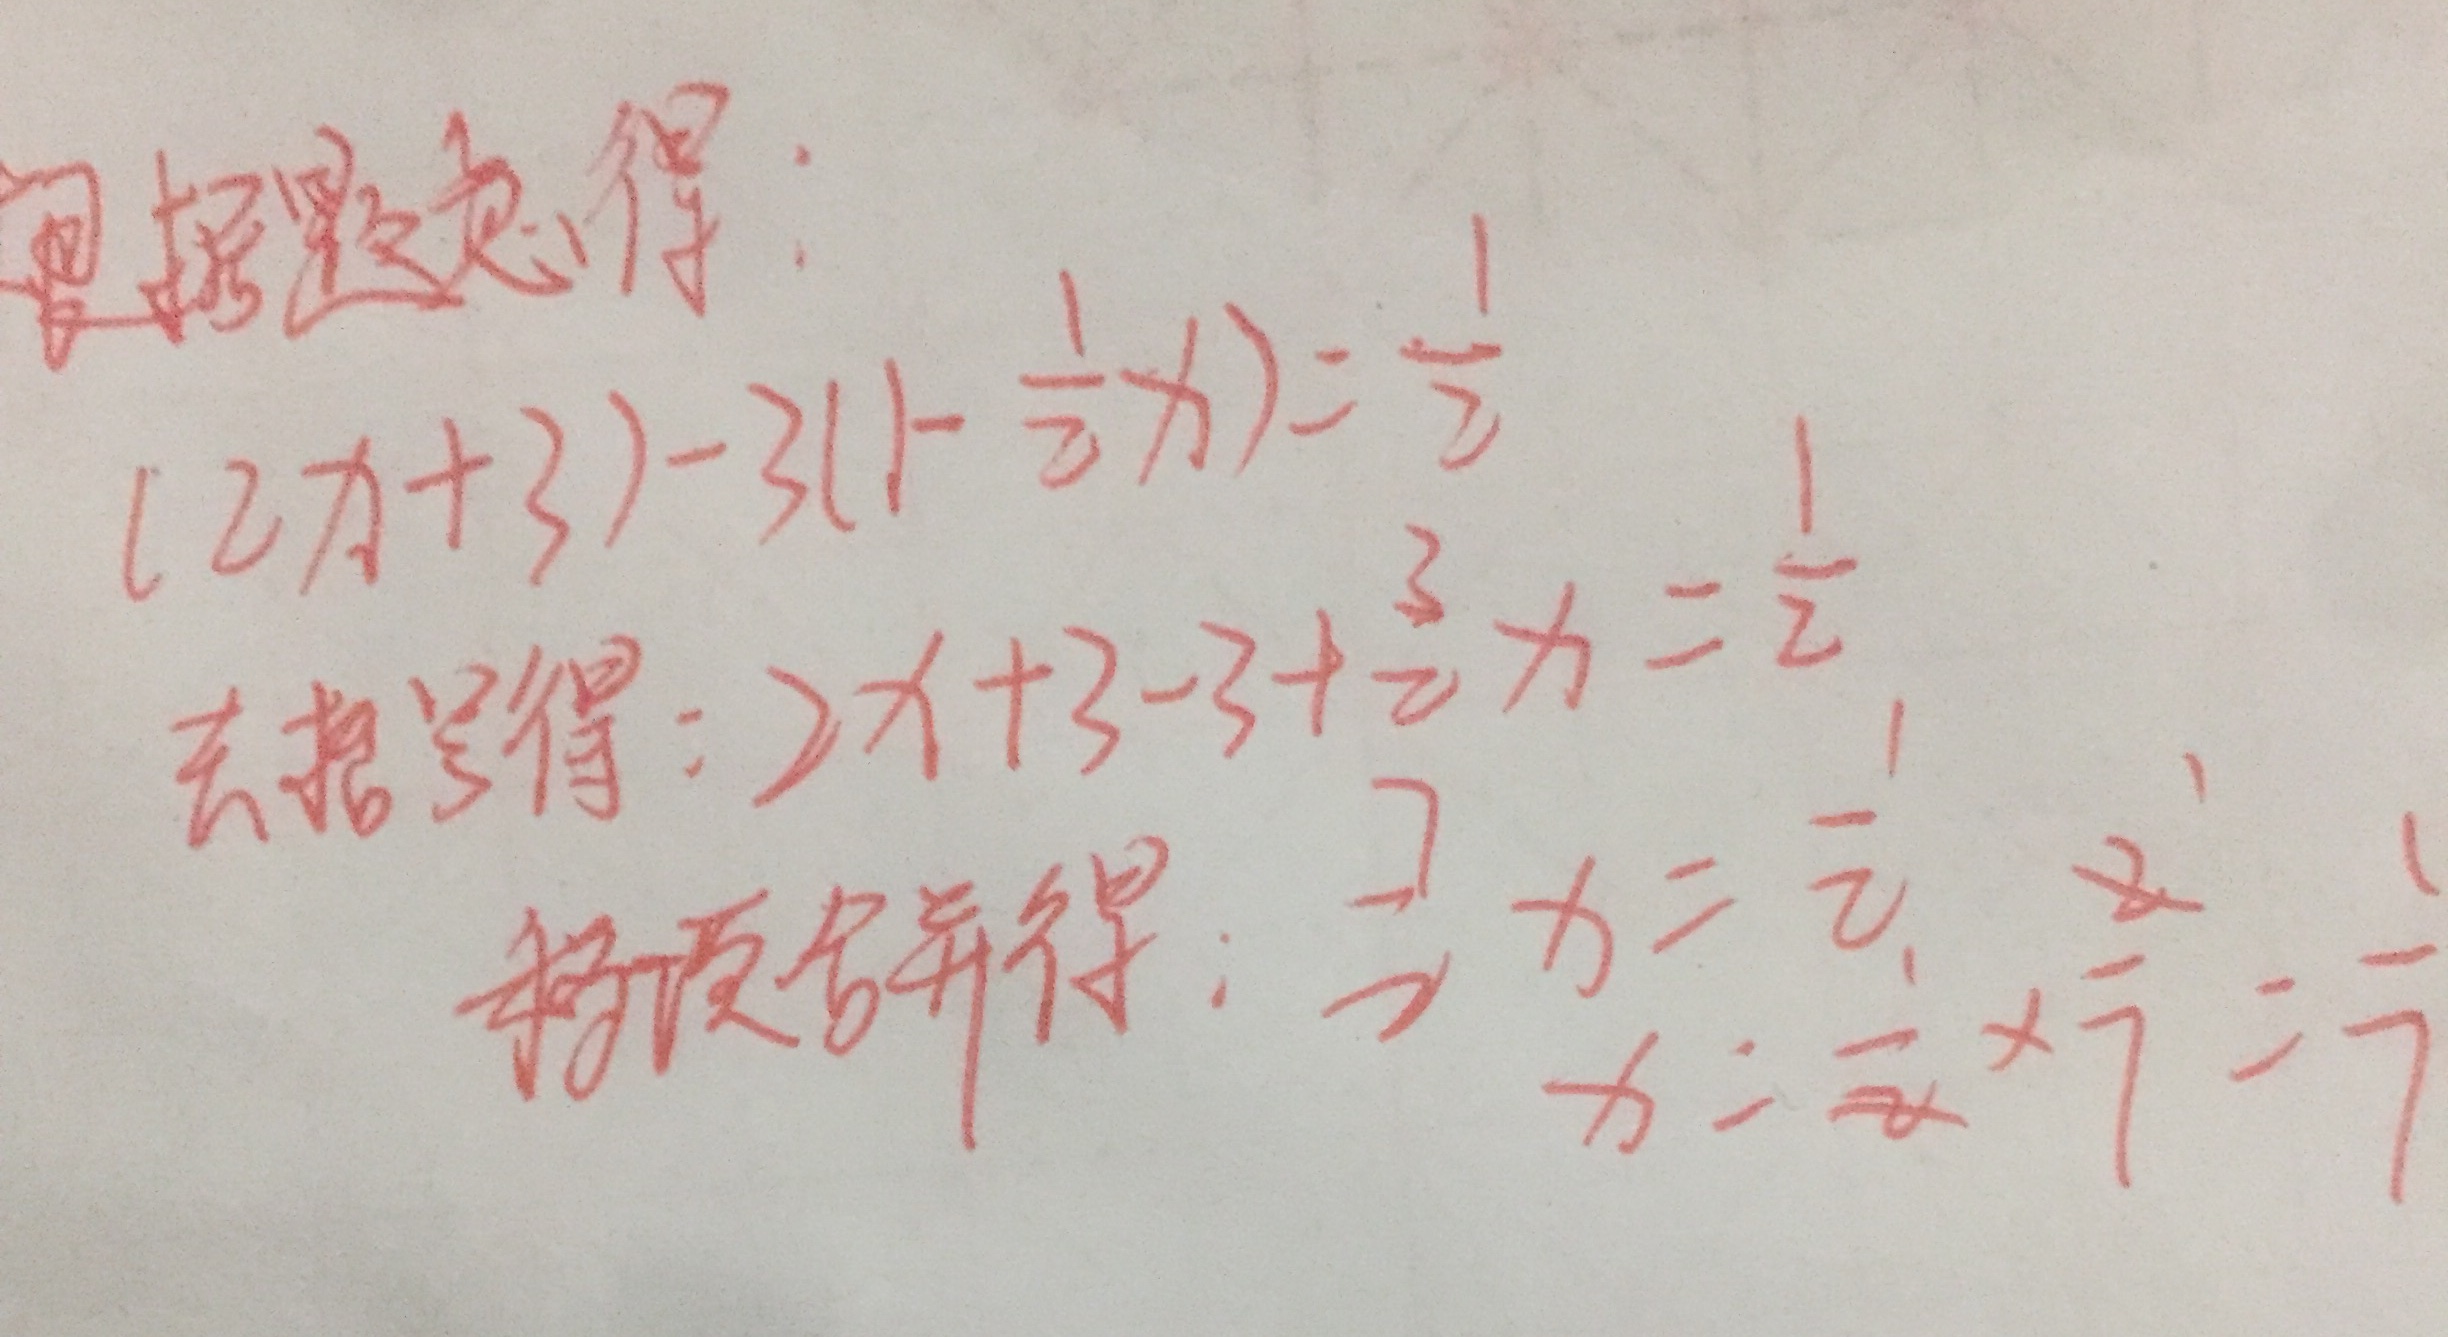 根据题意得:
(2x+3)-3(1-\frac{1}{2}x)=\frac{1}{2}
去括号得:2x+3-3+\frac{3}{2}x=\frac{1}{2}
移项合并得:\frac{7}{2}x=\frac{1}{2}
x=\frac{1}{2}×\frac{2}{7}=\frac{1}{7}